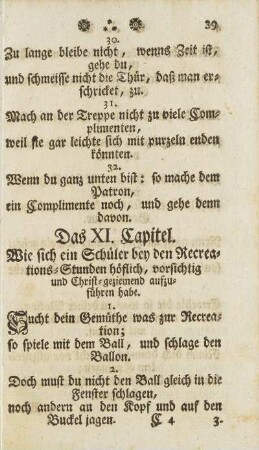 39
30.
Zu lange bleibe nicht, wenns Zeit ist,
gehe du,
und schmeisse nicht die Thür, daß man er-
schricket, zu.
31.
Mach an der Treppe nicht zu viele Com-
plimenten,
weil sie gar leichte sich mit purzeln enden
könnten.
32.
Wenn du ganz unten bist: so mache dem
Patron,
ein Complimente noch, und gehe denn
davon.
Das XI. Capitel.
Wie sich ein Schüler bey den Recrea-
tions-Stunden höflich, vorsichtig
und Christ-geziemend aufzu-
führen habe.
1.
Sucht dein Gemüthe was zur Recrea-
tion;
so spiele mit dem Ball, und schlage den
Ballon.
2.
Doch must du nicht den Ball gleich in die
Fenster schlagen,
noch andern an den Kopf und auf den
Buckel jagen.
C 4
3.